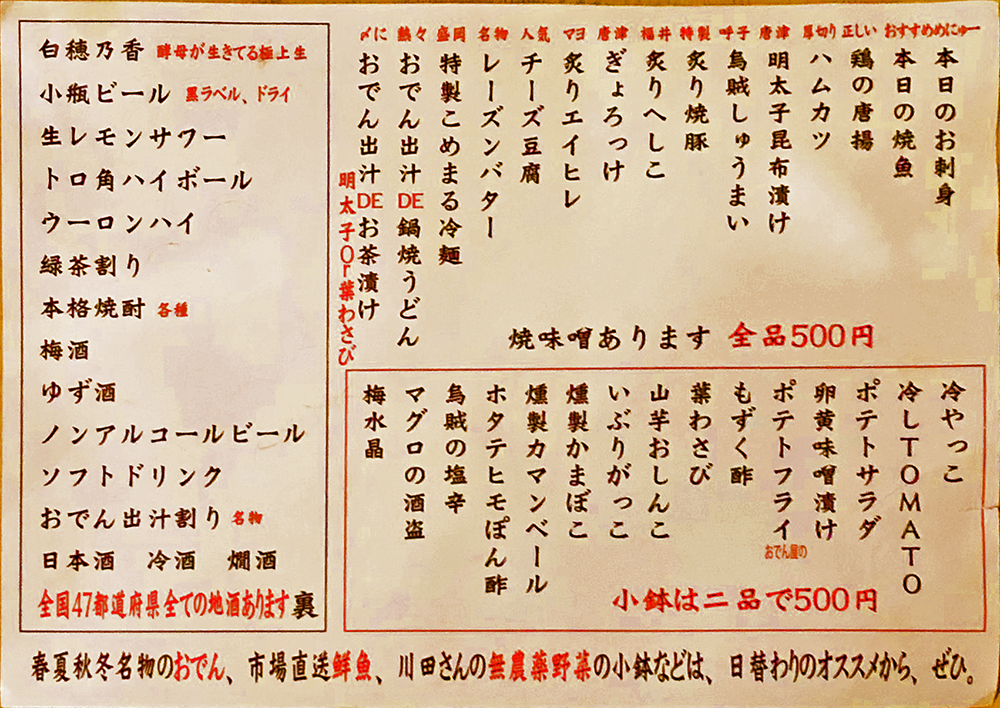 おすすめめにゅー
本日のお刺身
本日の焼魚
正しい 鶏の唐揚
厚切り ハムカツ
唐津 明太子昆布漬け
呼子 烏賊しゅうまい
特製 炙り焼豚
福井 炙りへしこ
唐津 ぎょろっけ
マヨ 炙りエイヒレ
人気 チーズ豆腐
名物 レーズンバター
盛岡 特製こめまる冷麺
熱々 おでん出汁DE鍋焼うどん
〆に おでん出汁DEお茶漬け
明太子Or葉わさび
焼味噌あります 全品500円
冷やっこ
冷しTOMATO
ポテトサラダ
卵黄味噌漬け
ポテトフライ おでん屋の
もずく酢
葉わさび
山芋おしんこ
いぶりがっこ
燻製かまぼこ
燻製カマンベール
ホタテヒモぽん酢
烏賊の塩辛
マグロの酒盗
梅水晶
小鉢は二品で500円
白穂乃香 酵母が生きてる極上生
小瓶ビール 黒ラベル、ドライ
生レモンサワー
トロ角ハイボール
ウーロンハイ
緑茶割り
本格焼酎 各種
梅酒
ゆず酒
ノンアルコールビール
ソフトドリンク
おでん出汁割り 名物
日本酒 冷酒 燗酒
全国47都道府県全ての地酒あります裏
春夏秋冬名物のおでん、市場直送鮮魚、川田さんの無農薬野菜の小鉢などは、日替わりのオススメから、ぜひ。